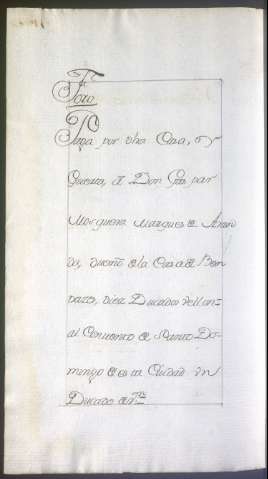 Foro
Paga por dha Casa, y
Guerta, d Don Gas par
Mosquera Marques de Aran
da, dueño de la Casa de Bem
vacos, diez Ducados vellon
al Convento de Santo Do-
mingo de esta Ciudad Vn
Ducado de Rta